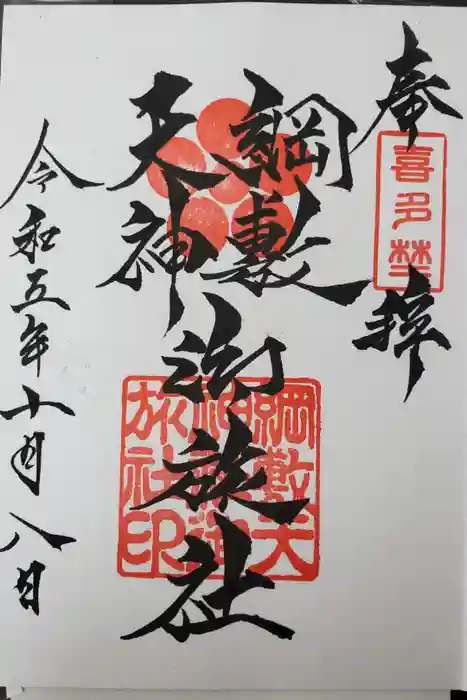 奉拝
喜多埜
綱敷
天神
御旅社
綱敷天
神御
旅社印
令和五年十月八日